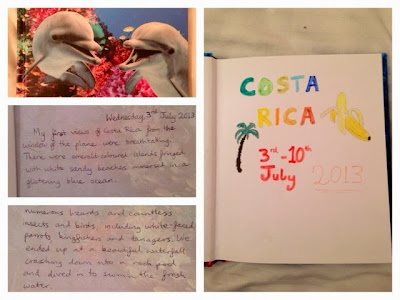 Wednesday 3rd July 2013
My first views of Costa Rica from the
window of the plane were breathtaking.
There were emerald coloured islands fringed
with white sandy beaches immersed in a
glistening blue ocean.
numerous lizards and countless
insects and birds, including white-faced
parrots, kingfishers and tanagers. We
ended up at a beautiful waterfall
crashing down into a rock pool
and dived in to swim in the fresh
water.
COSTA
RICA
3rd-10th
July 2013